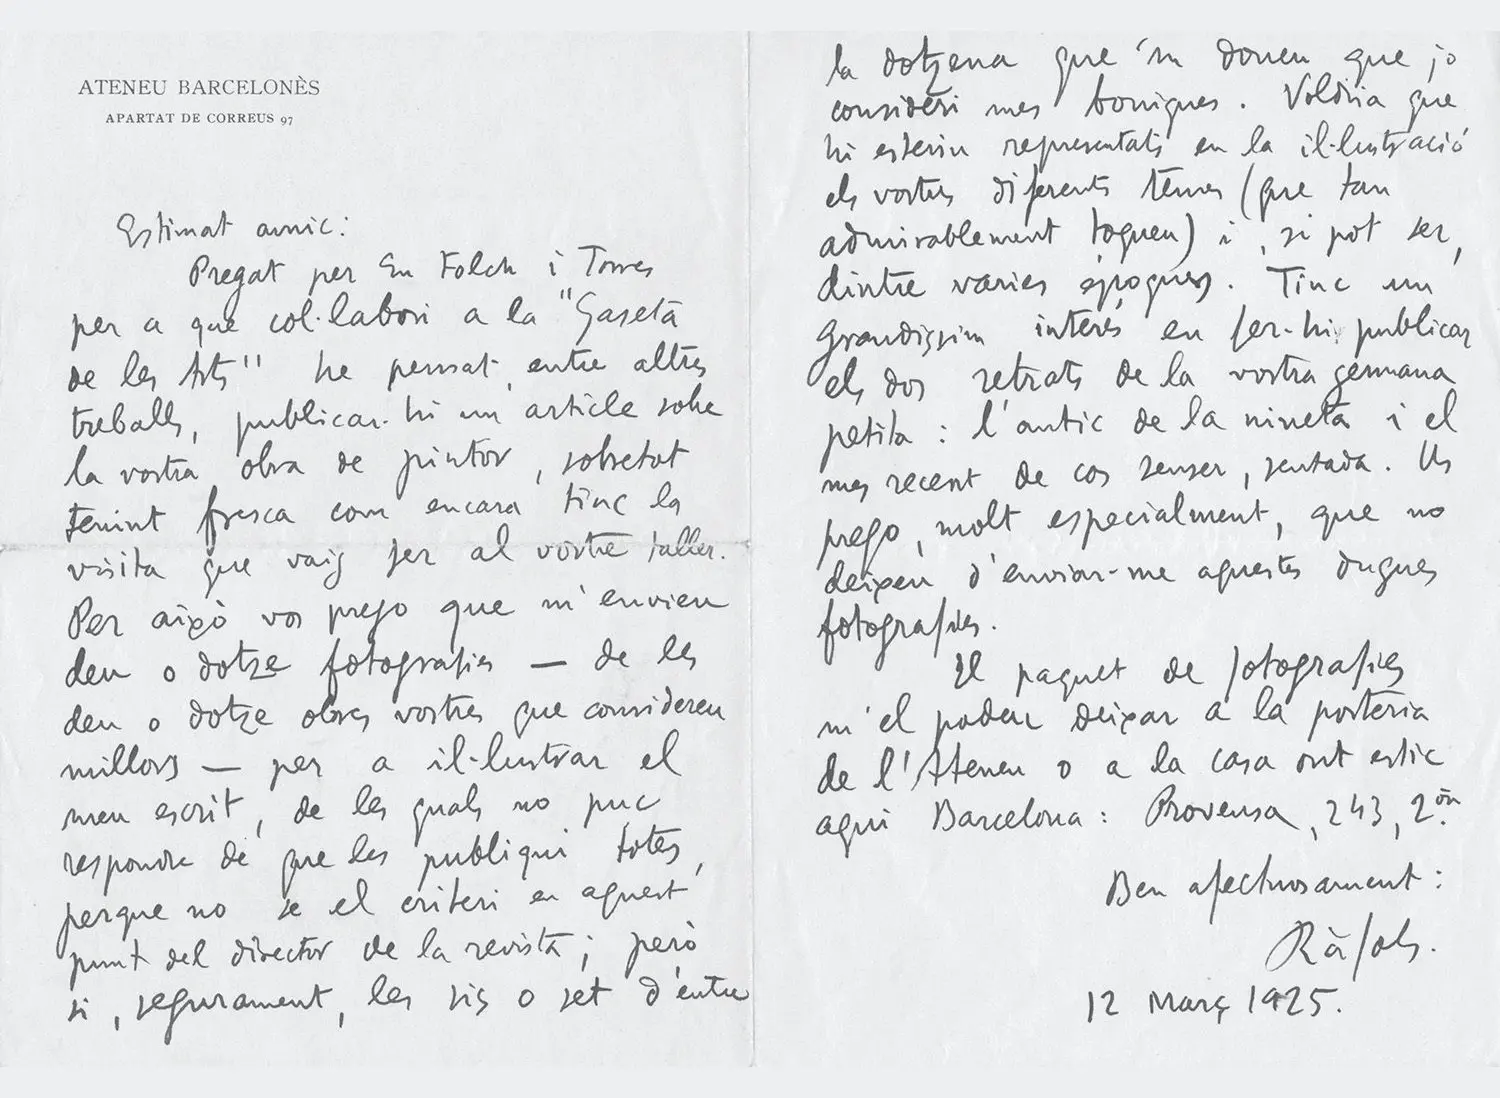 ATENEU BARCELONÈS
APARTAT DE CORREUS 97
Estimat amic:
Pregat per En Folch i Torres
per a que col·labori a la "Gaseta
de les Arts" he pensat, entre altres
treballs, publicar-hi un article sobre
la vostra obra de pintor, sobretot
tenint fresca com encara tinc la
visita que vaig fer al vostre taller.
Per aixó vos prego que m'envieu
deu o dotze fotografies — de les
deu o dotze obres vostres que considereu
millors — per a il·lustrar el
meu escrit, de les quals no puc
respondre de que les publiqui totes,
perque no se el criteri en aquest
punt del director de la revista; però
si, segurament, les sis o set d'entre
la dotzena que'm doneu que jo
consideri mes boniques. Voldria que
hi estesin representats en la il·lustració
els vostres diferents temes (que tan
admirablement toqueu) i, si pot ser,
dintre varies époques. Tinc un
grandissim interés en fer-hi publicar
els dos retrats de la vostra germana
petita: l'antic de la nineta i el
mes recent de cos senser, sentada. Us
prego, molt especialment, que no
deixeu d'enviar-me aquestes dugues
fotografies.
El paquet de fotografies
m'el podeu deixar a la porteria
de l'Ateneu o a la casa ont estic
aqui Barcelona: Provensa, 243, 2.on
Ben afectuosament:
Ràfols.
12 Març 1925.